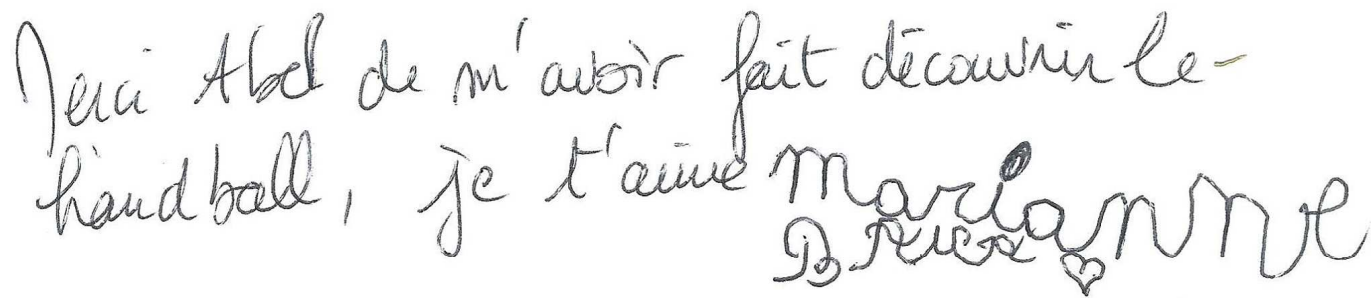 Merci Abel de m'avoir fait découvrir le
handball, je t'aime Marianne